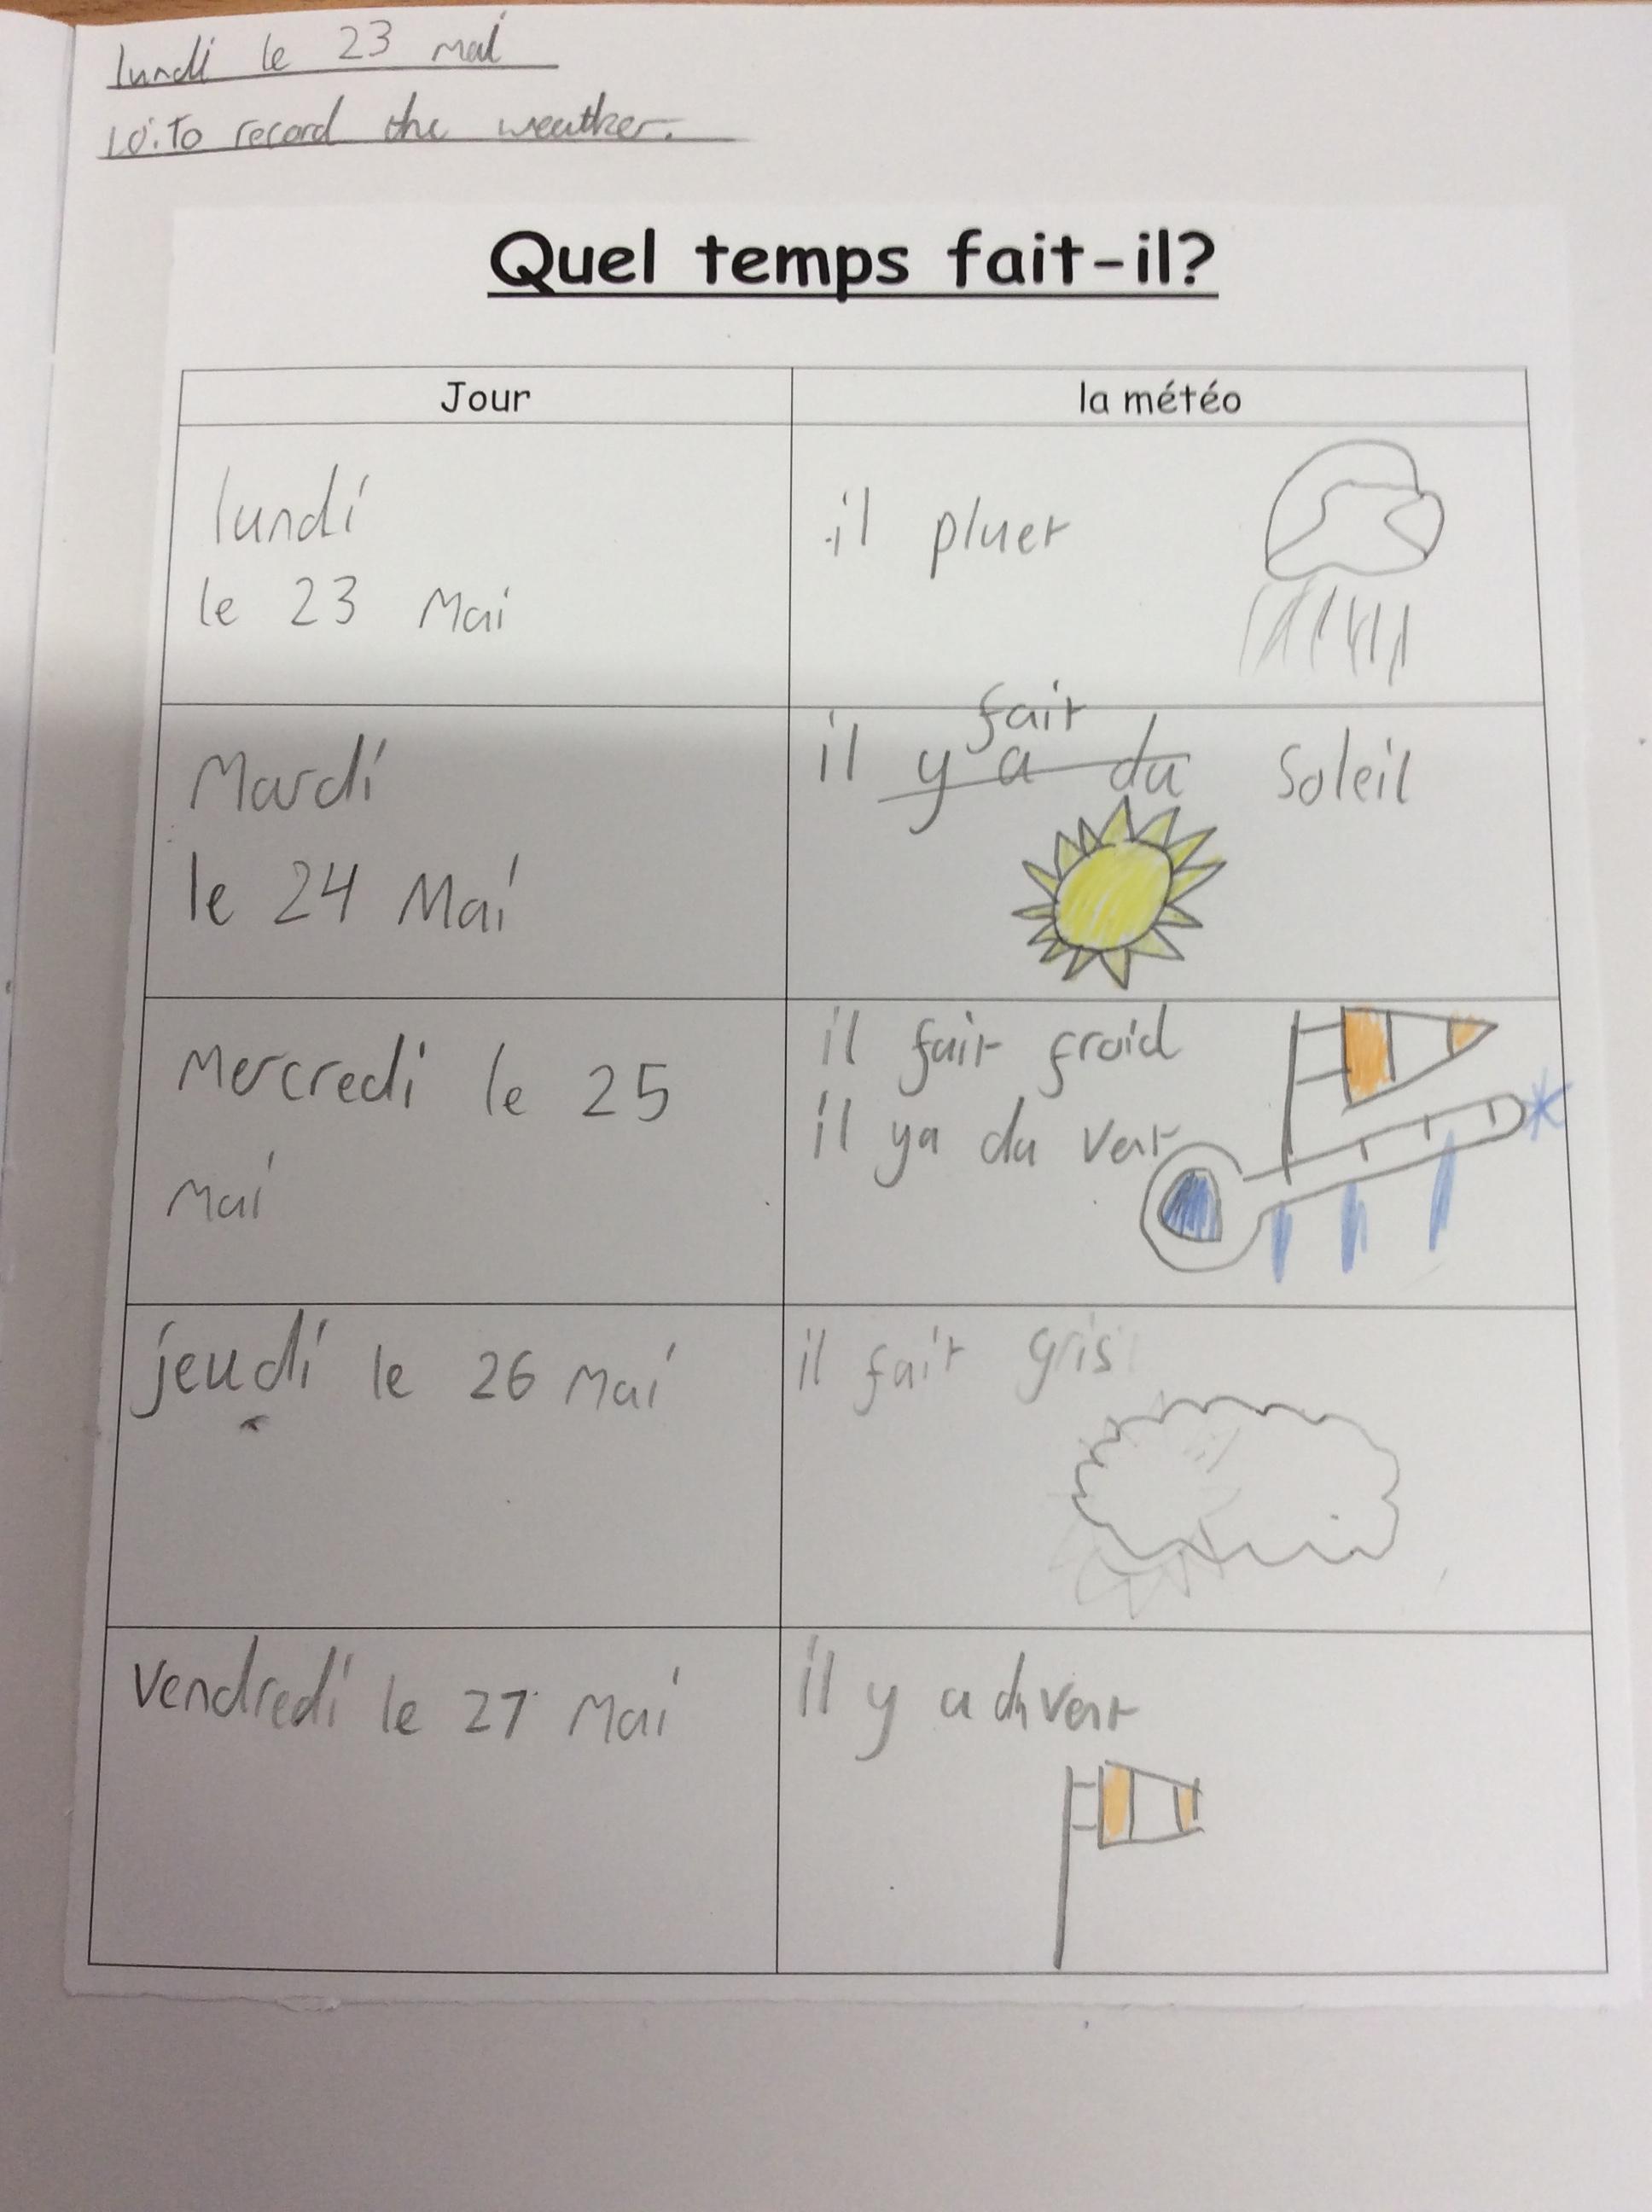 lundi le 23 mai
LO: To record the weather.
Quel temps fait-il?
Jour
la météo
lundi
le 23 Mai
il pluet
Mardi
le 24 Mai
fait
il y a du Soleil
Mercredi le 25
Mai
il fait froid
il ya du vent
jeudi le 26 Mai
il fait gris
Vendredi le 27 Mai
il y a du vent